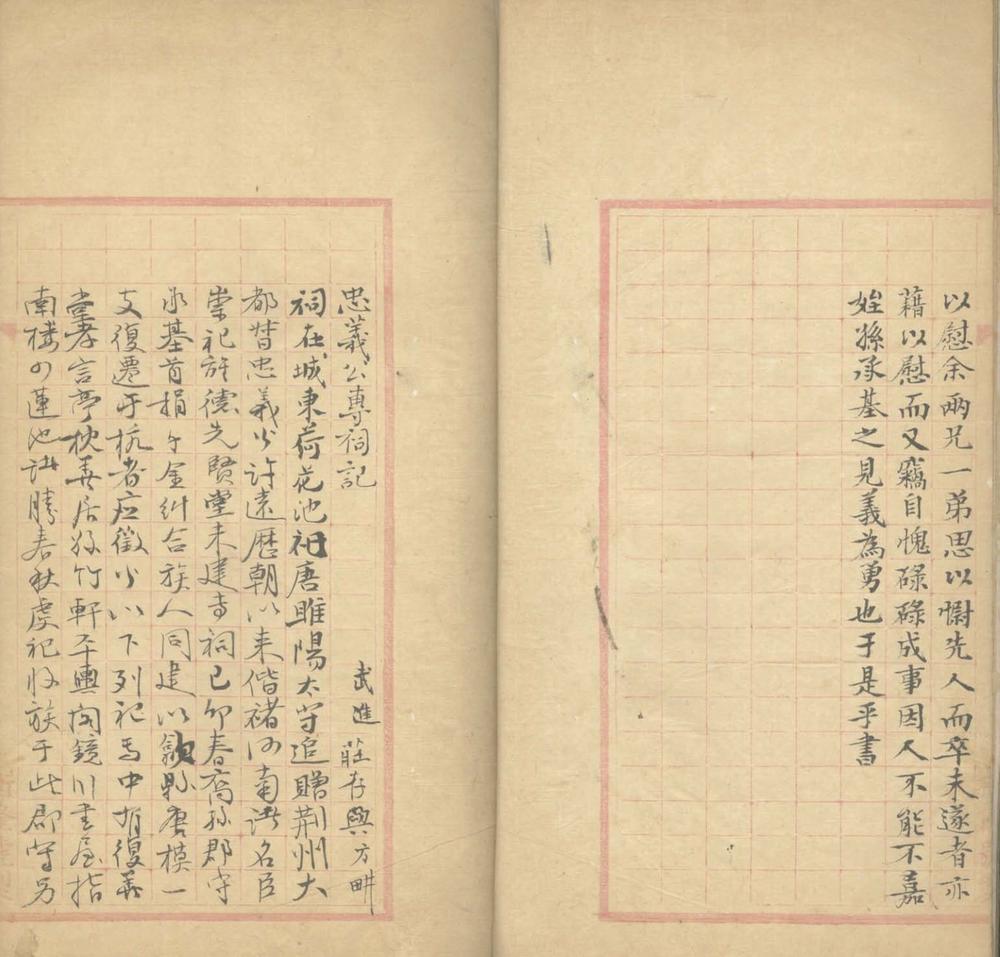 以慰余兩兄一弟思以慰先人而卒未遂者亦
藉以慰而又竊自愧碌碌成事因人不能不嘉
姪孫承基之見義為勇也于是乎書
忠義公專祠記
武進 莊存與 方畊
祠在城東荷花池祀唐睢陽太守追贈荆州大
都督忠義公許遠歷朝以來偕褚河南諸名臣
崇祀於德先賢堂未建專祠己卯春裔孫郡守
承基首捐千金糾合族人同建以歙縣唐模一
支復遷于杭者应徵公以下列祀焉中有復善
堂孝言亭枕善居綠竹軒平輿閣鏡川書屋指
南樓四蓮池諸勝春秋虔祀收族于此郡守另